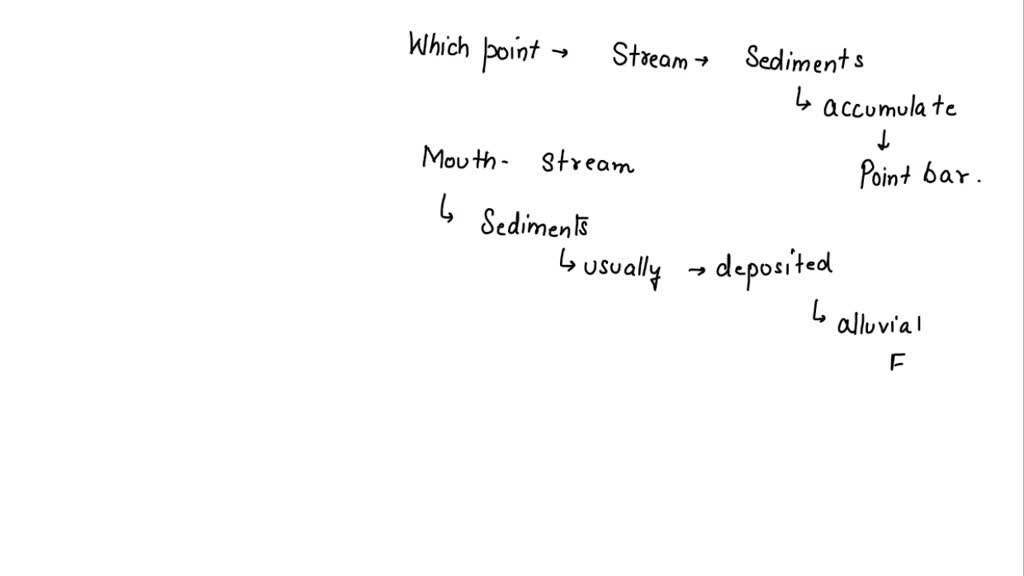 Which point → Stream → Sediments
↳ accumulate
↓
Point bar.
Mouth - stream
↳ Sediments
↳ usually → deposited
↳ alluvial
F